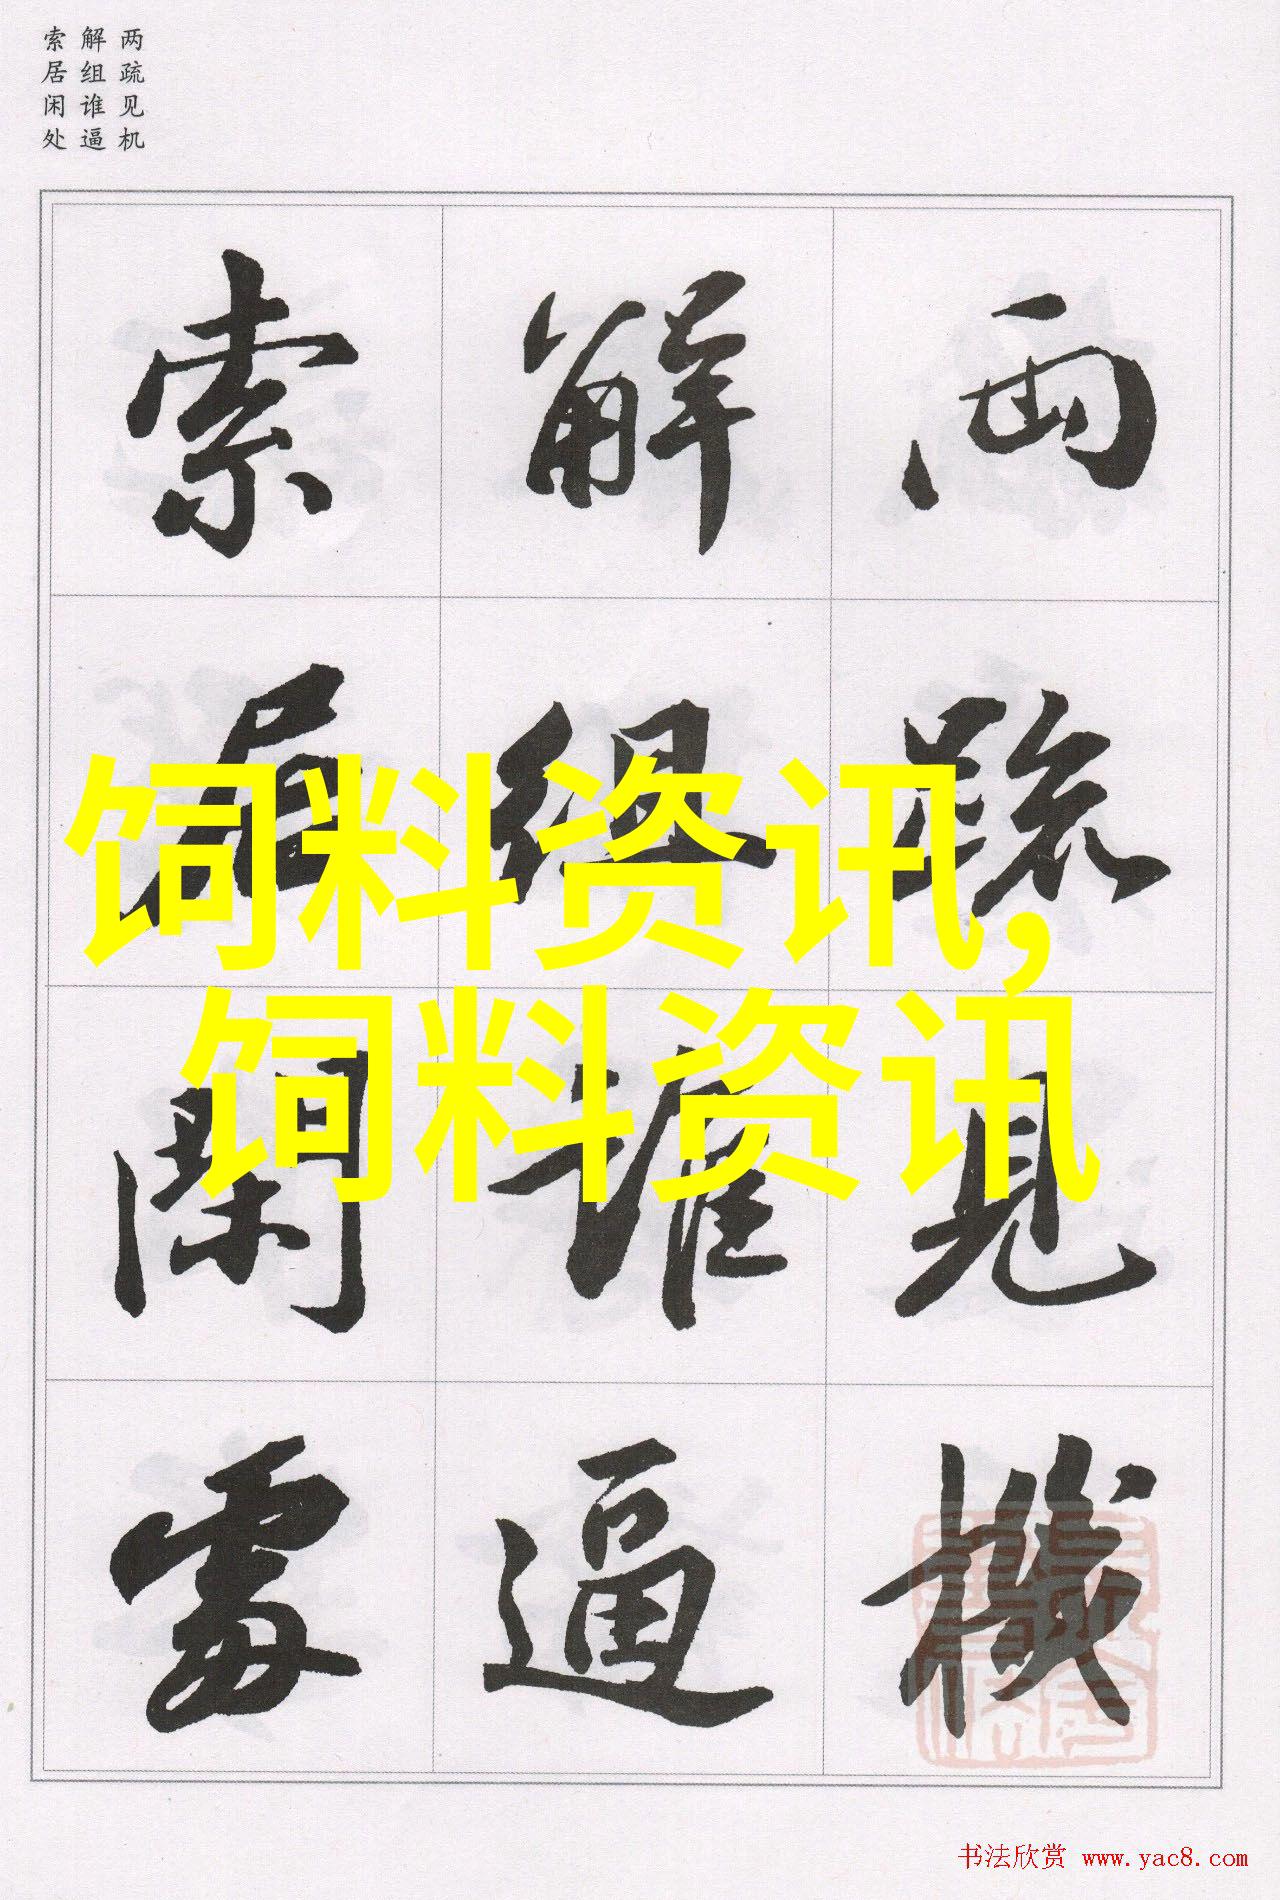 两疏见机
解组谁逼
索居闲处
两疏見機
解組誰逼
索居閑處
饲料资讯,
饲料资讯
书法欣赏 www.yac8.com